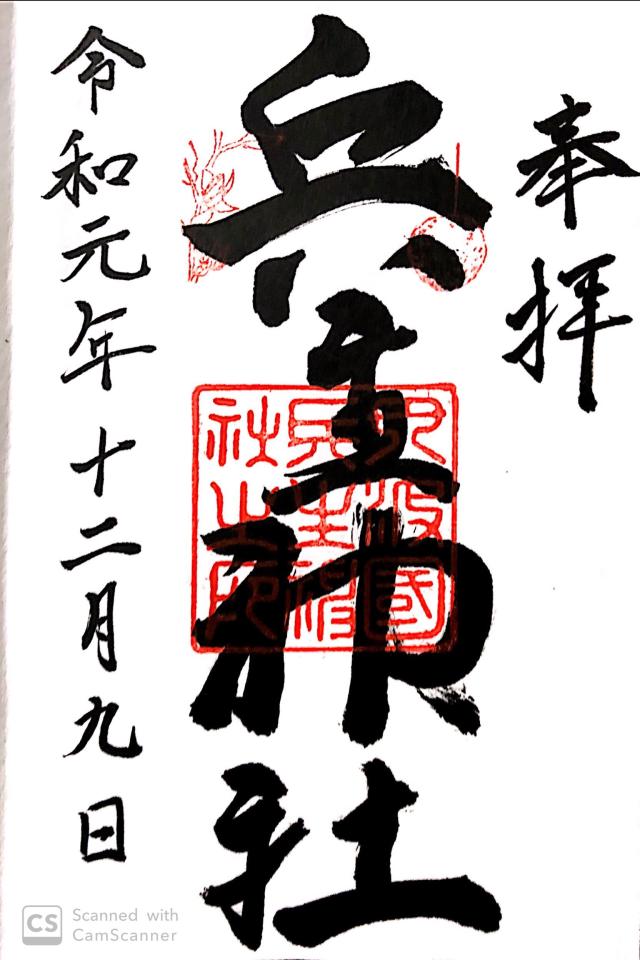 奉拝
兵主神社
丹波國
兵主神
社之印
令和元年十二月九日
CS Scanned with
CamScanner